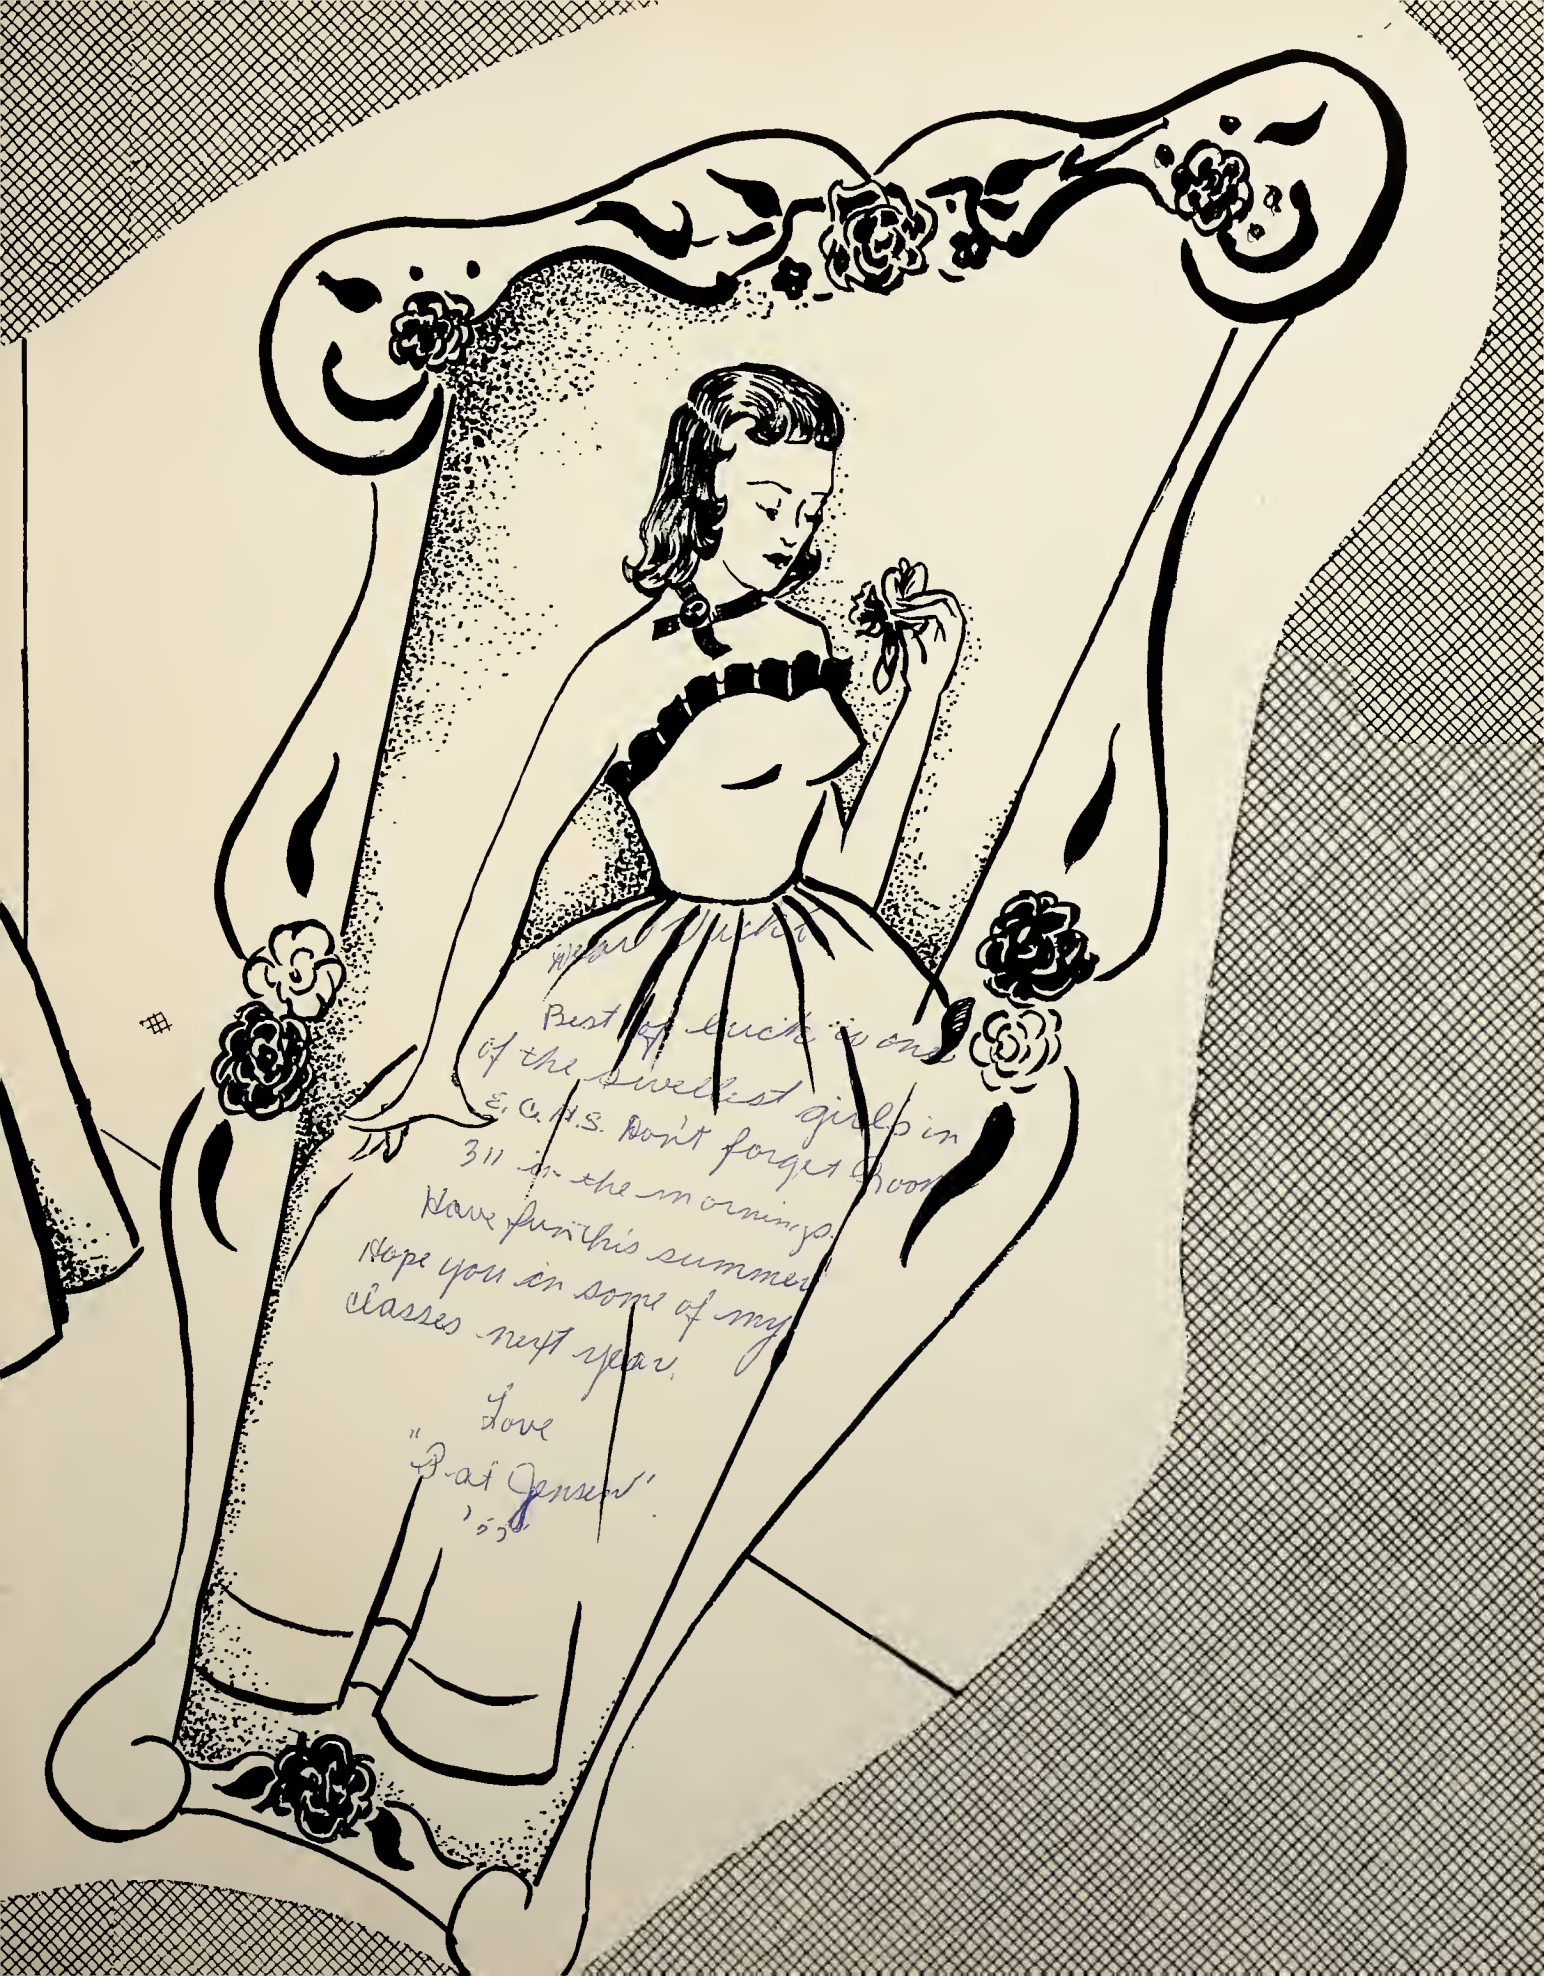 Dear
Best of luck to one
of the swellest girls in
E. C. H. S. Don't forget Room
311 in the mornings.
Have fun this summer
Hope you in some of my
classes next year.
Love
"Pat Jensen"